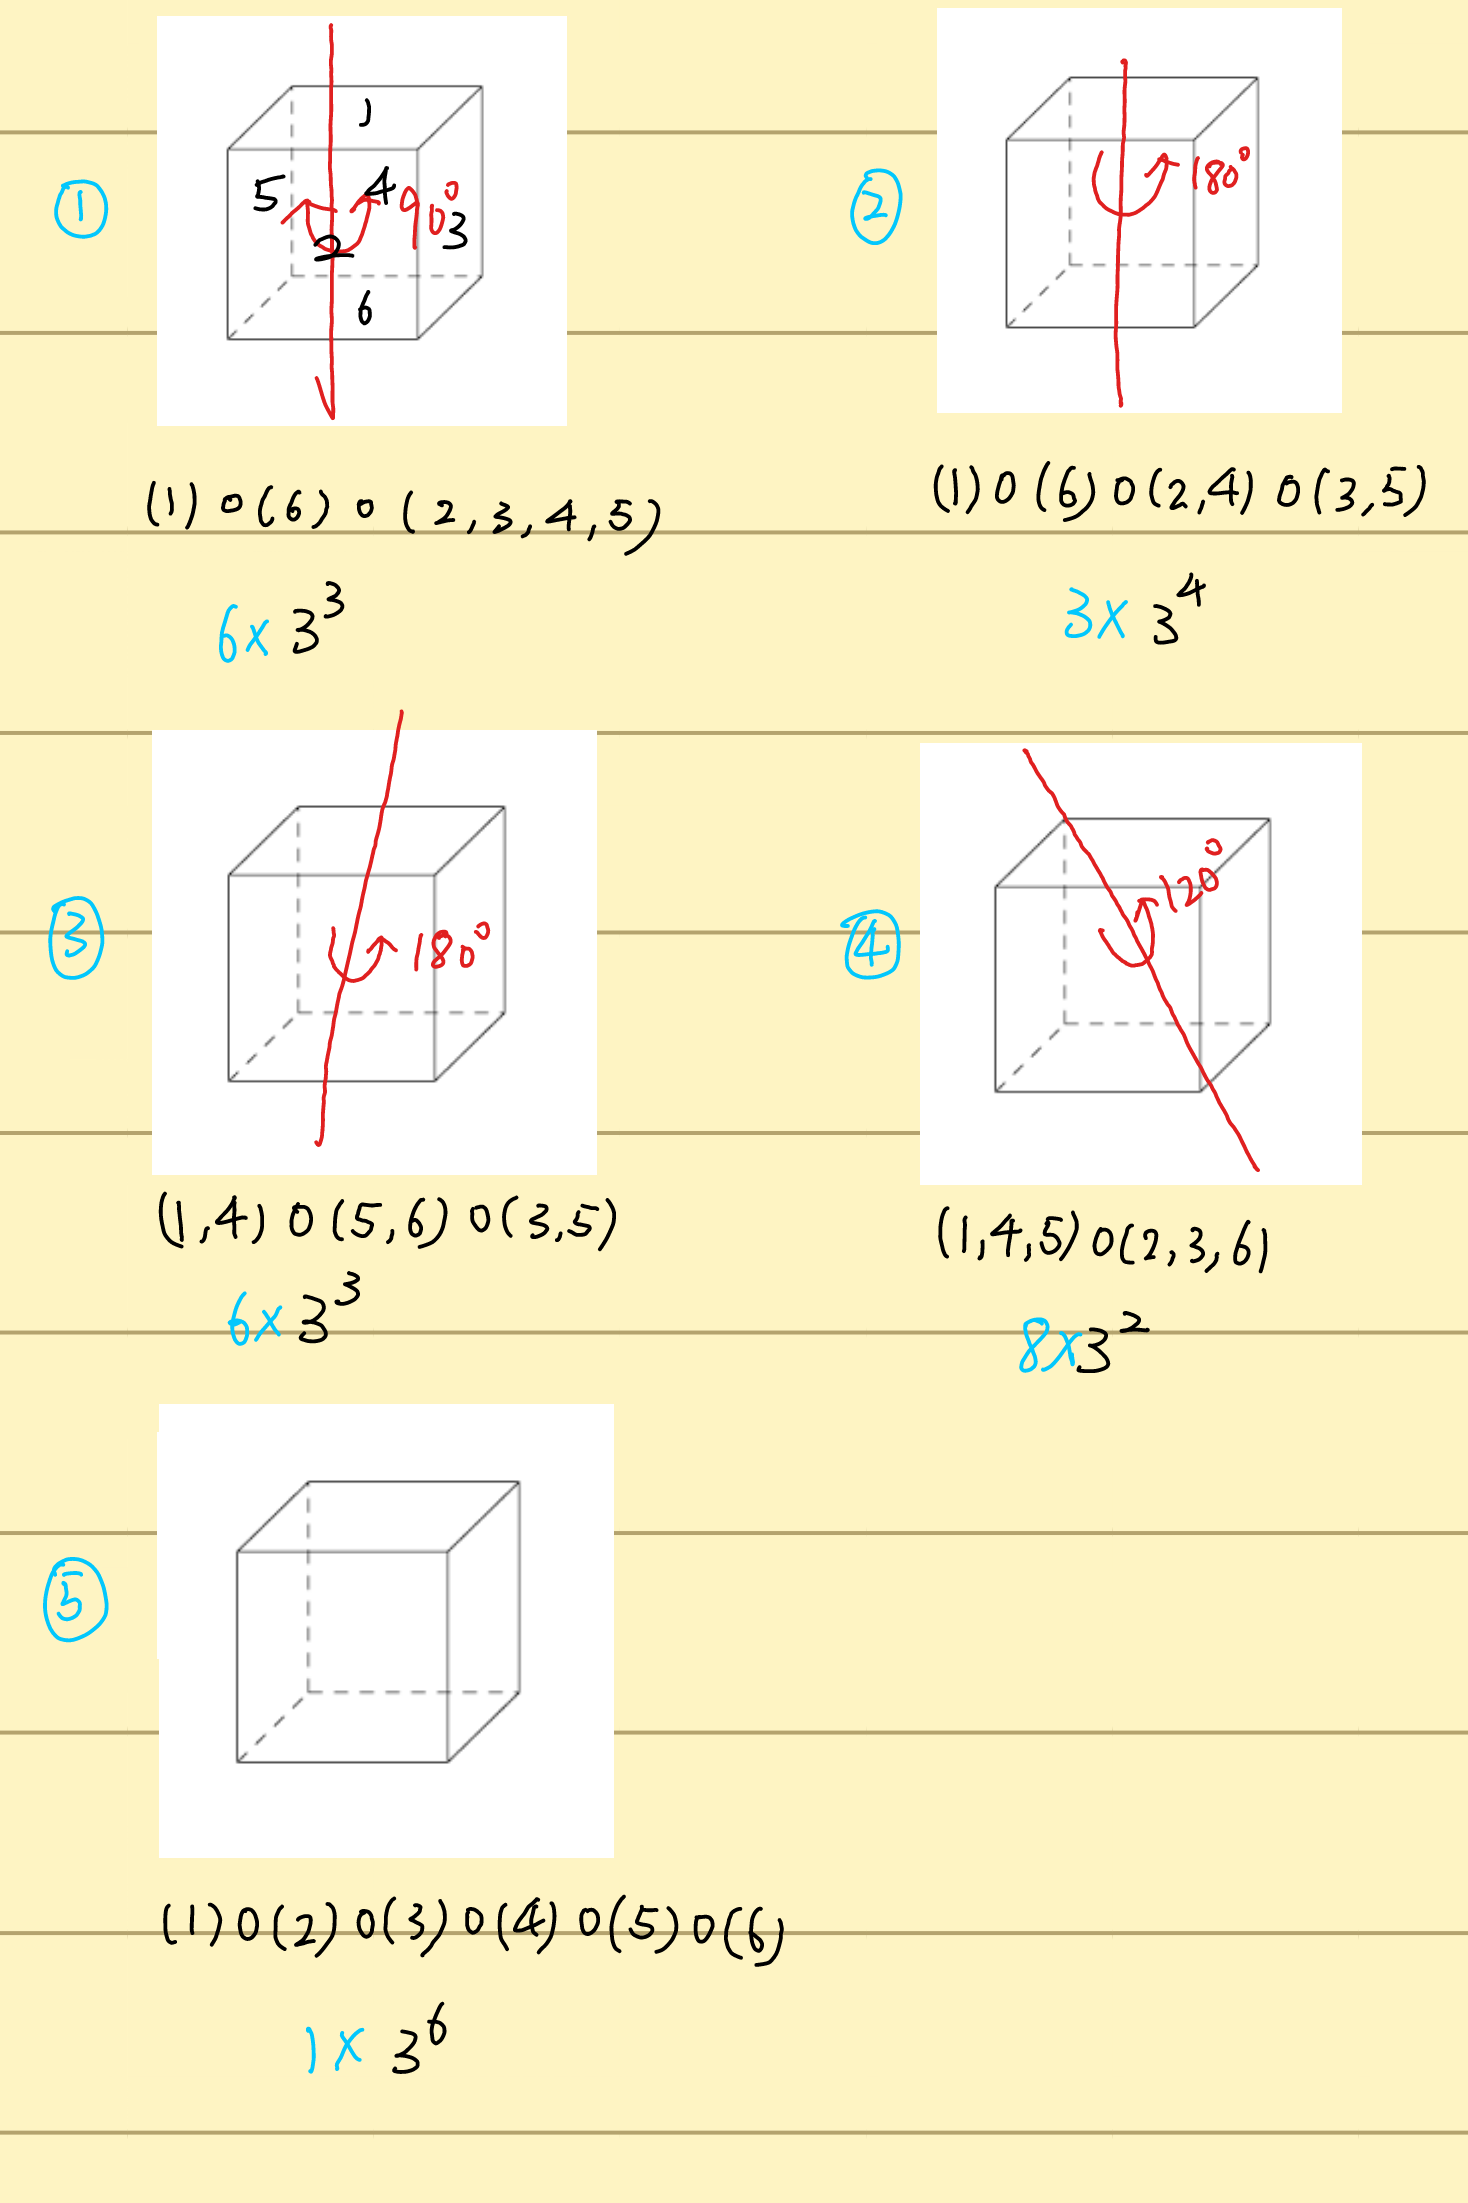 ①
1
5 4 90°
2 3
6
(1) o (6) o (2,3,4,5)
6x 3³
②
180°
(1) o (6) o (2,4) o (3,5)
3x 3⁴
③
180°
(1,4) o (5,6) o (3,5)
6x 3³
④
120°
(1,4,5) o (2,3,6)
8x3²
⑤
(1) o (2) o (3) o (4) o (5) o (6)
1x 3⁶